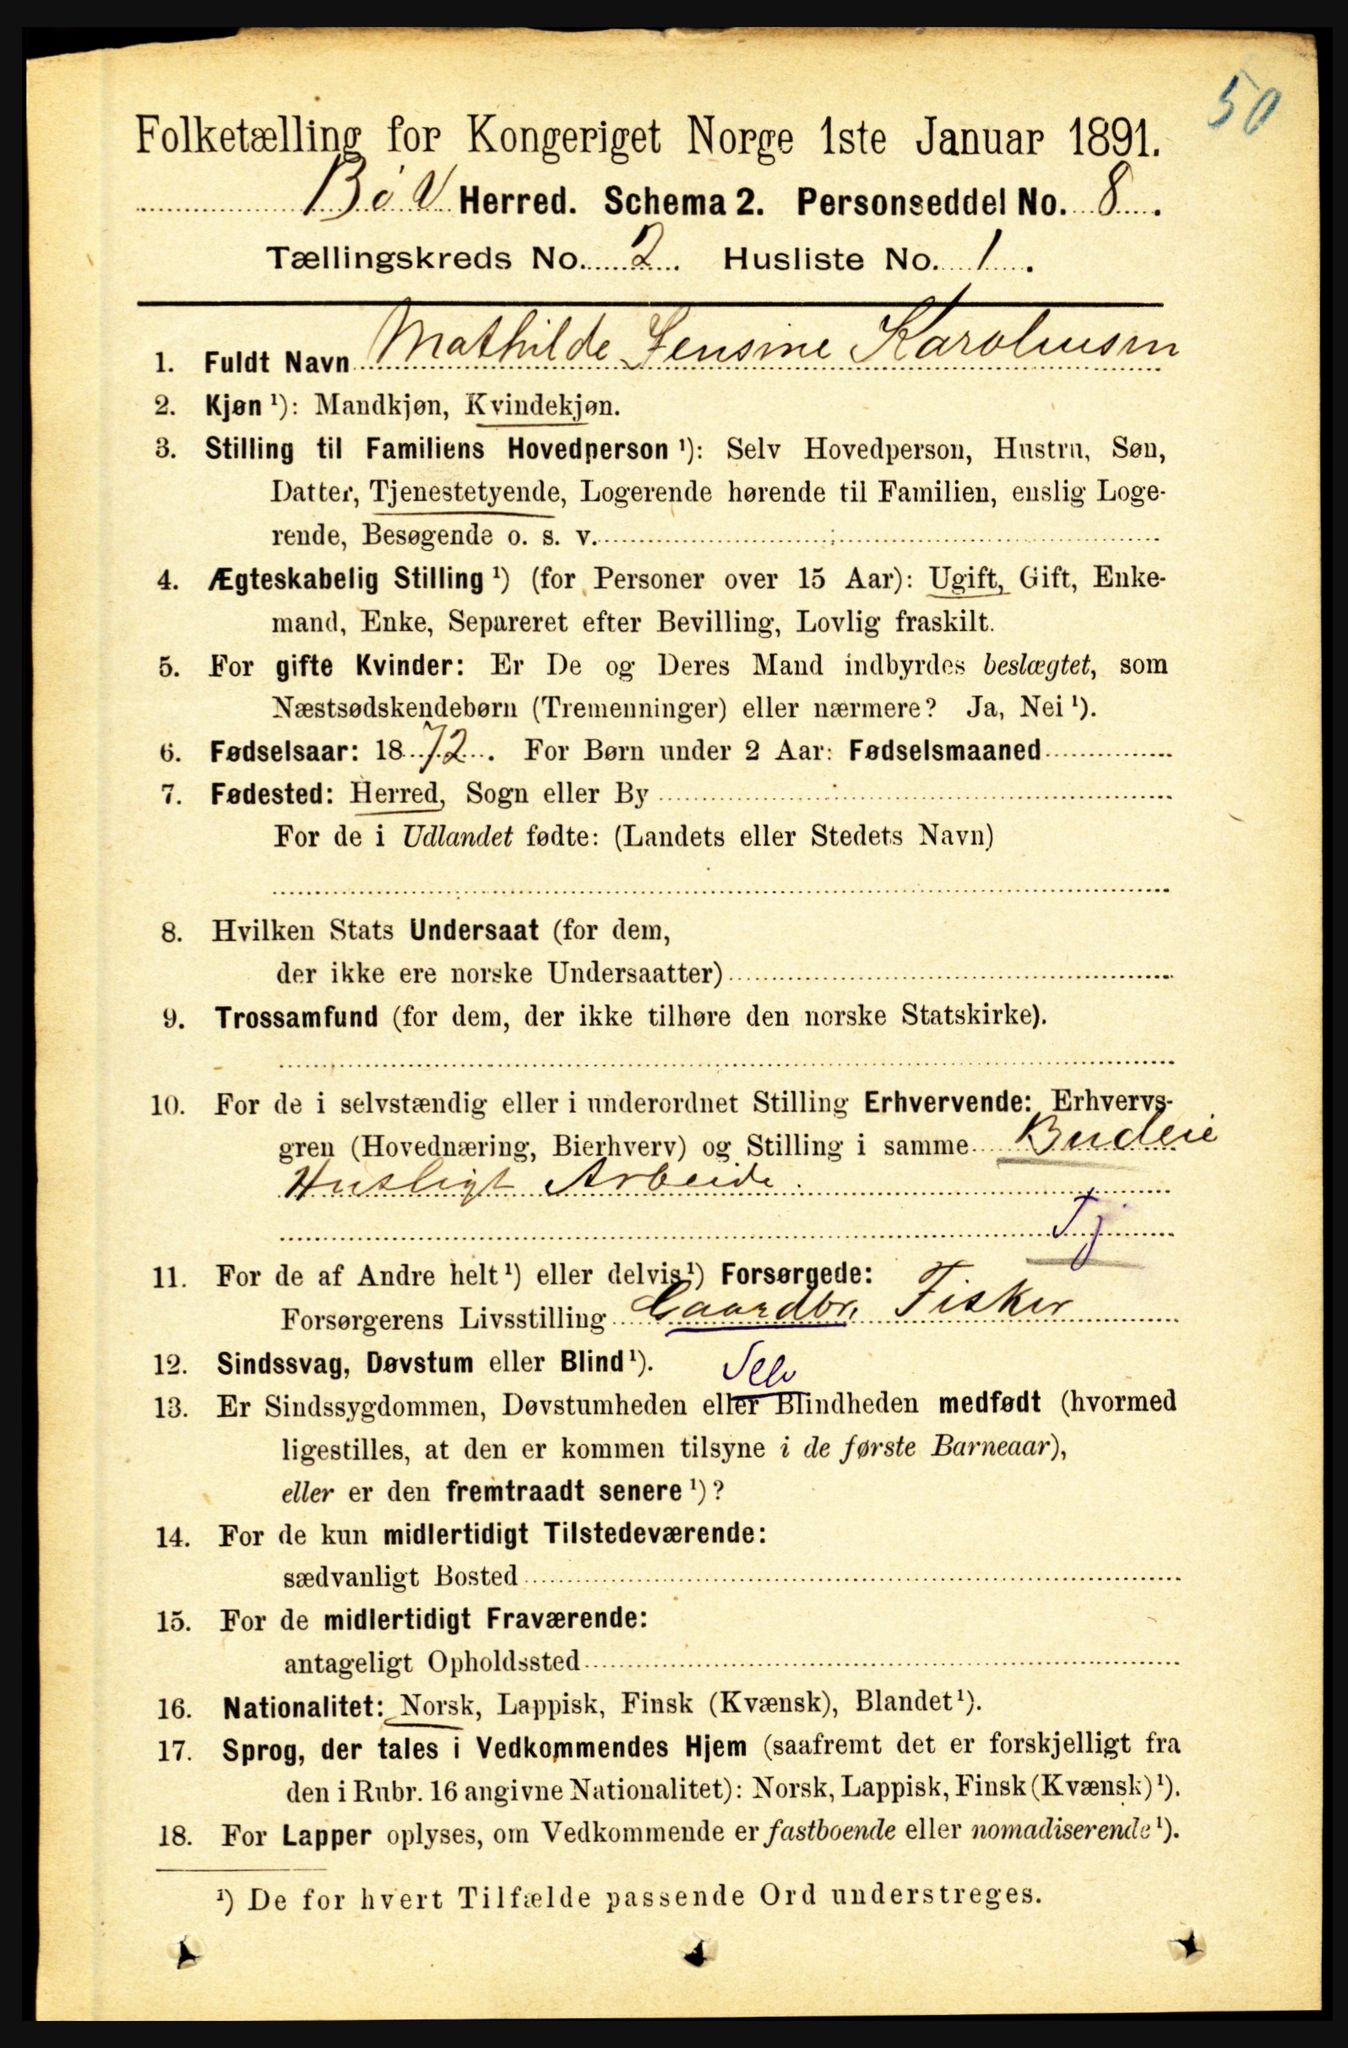 50
Folketælling for Kongeriget Norge 1ste Januar 1891.
Bø V Herred. Schema 2. Personseddel No. 8.
Tællingskreds No. 2. Husliste No. 1.
1. Fuldt Navn Mathilde Jensine Karoliusen
2. Kjøn ¹): Mandkjøn, Kvindekjøn.
3. Stilling til Familiens Hovedperson ¹): Selv Hovedperson, Hustru, Søn,
Datter, Tjenestetyende, Logerende hørende til Familien, enslig Loge-
rende, Besøgende o. s. v.
4. Ægteskabelig Stilling ¹) (for Personer over 15 Aar): Ugift, Gift, Enke-
mand, Enke, Separeret efter Bevilling, Lovlig fraskilt.
5. For gifte Kvinder: Er De og Deres Mand indbyrdes beslægtet, som
Næstsødskendebørn (Tremenninger) eller nærmere? Ja, Nei ¹).
6. Fødselsaar: 1872. For Børn under 2 Aar: Fødselsmaaned
7. Fødested: Herred, Sogn eller By
For de i Udlandet fødte: (Landets eller Stedets Navn)
8. Hvilken Stats Undersaat (for dem,
der ikke ere norske Undersaatter)
9. Trossamfund (for dem, der ikke tilhøre den norske Statskirke).
10. For de i selvstændig eller i underordnet Stilling Erhvervende: Erhvervs-
gren (Hovednæring, Bierhverv) og Stilling i samme Budeie
Husligt Arbeide.
Tj
11. For de af Andre helt ¹) eller delvis ¹) Forsørgede:
Forsørgerens Livsstilling Gaardbr. Fisker
12. Sindssvag, Døvstum eller Blind ¹). Selv
13. Er Sindssygdommen, Døvstumheden eller Blindheden medfødt (hvormed
ligestilles, at den er kommen tilsyne i de første Barneaar),
eller er den fremtraadt senere ¹)?
14. For de kun midlertidigt Tilstedeværende:
sædvanligt Bosted
15. For de midlertidigt Fraværende:
antageligt Opholdssted
16. Nationalitet: Norsk, Lappisk, Finsk (Kvænsk), Blandet ¹).
17. Sprog, der tales i Vedkommendes Hjem (saafremt det er forskjelligt fra
den i Rubr. 16 angivne Nationalitet): Norsk, Lappisk, Finsk (Kvænsk) ¹).
18. For Lapper oplyses, om Vedkommende er fastboende eller nomadiserende ¹).
¹) De for hvert Tilfælde passende Ord understreges.